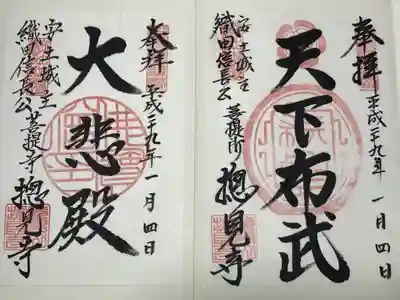 奉拝
平成二十九年一月四日
天下布武
安土城主
織田信長公菩提所
摠見寺
奉拝
平成二十九年一月四日
大悲殿
安土城主
織田信長公菩提寺
摠見寺